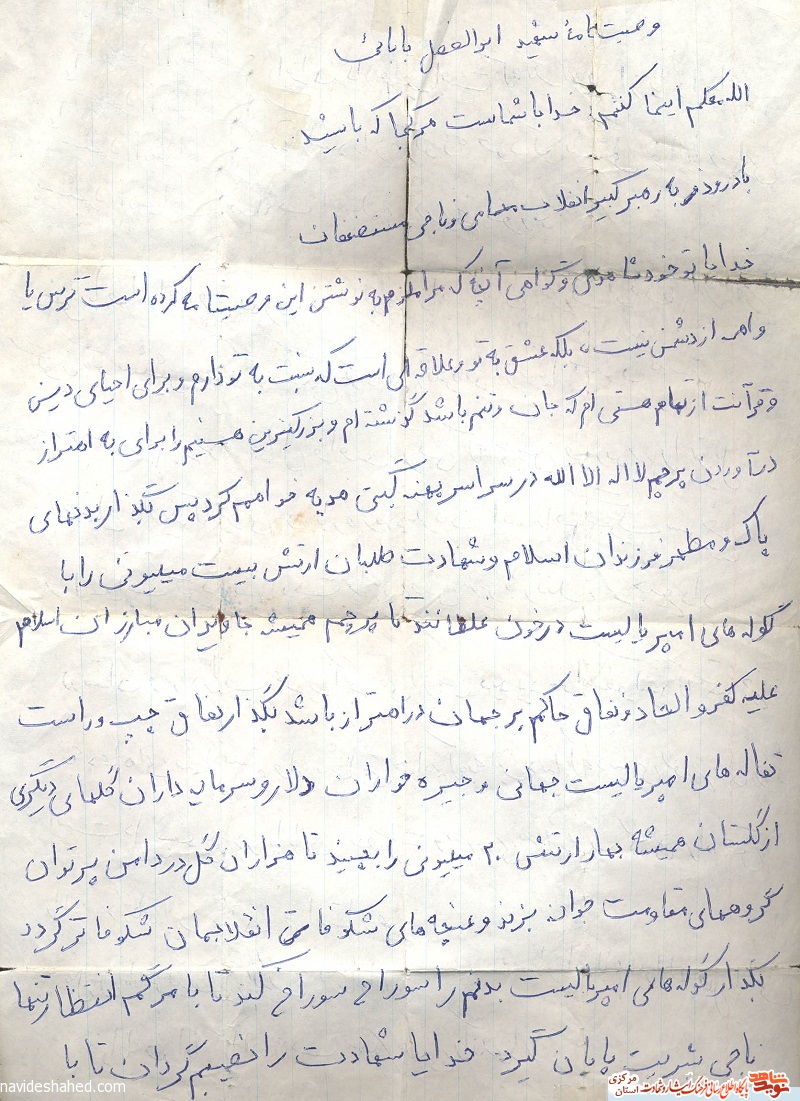 وصیت نامهٔ شهید ابوالفضل بابائی
الله معکم اینما کنتم: خدا با شماست هر کجا که باشید
با درود به رهبر کبیر انقلاب خمینی و ناجی مستضعفان
خدایا تو خود شاهدی و گواهی آنچه که مرا ملزم به نوشتن این وصیتنامه کرده است ترس یا
واهمه از دشمن نیست، بلکه عشق به تو و علاقه ای است که نسبت به تو دارم و برای احیای دین
و قرآنت از تمام هستی ام که جان و تنم باشد گذشته ام و بزرگترین هستیم را برای به اهتزاز
درآوردن پرچم لا اله الا الله در سراسر پهنه گیتی هدیه خواهم کرد پس بگذار بدنهای
پاک و مطهر فرزندان اسلام و شهادت طلبان ارتش بیست میلیونی را با
گوله های امپریالیست در خون غلطانند تا پرچم همیشه جاویدان مبارزان اسلام
علیه کفر و الحاد و نفاق حاکم بر جهان در اهتراز باشد بگذار نفاق چپ و راست
تفاله های امپریالیست جهانی و جیره خواران دلار و سرمایه داران گلهای دیگری
از گلستان همیشه بهار ارتش ۲۰ میلیونی را بچینند تا هزاران گل در دامن پرتوان
گروههای مقاومت جوانه بزند و غنچه های شکوفای انقلابمان شکوفاتر گردد
بگذار گوله های امپریالیست بدنم را سوراخ سوراخ کند تا با مرگم انتظار تنها
ناجی بشریت پایان گیرد خدایا شهادت را نصیبم گردان تا با
navideshahed.com
نوید شاهد
پایگاه اطلاع رسانی فرهنگ ایثار و شهادت
استان مرکزی